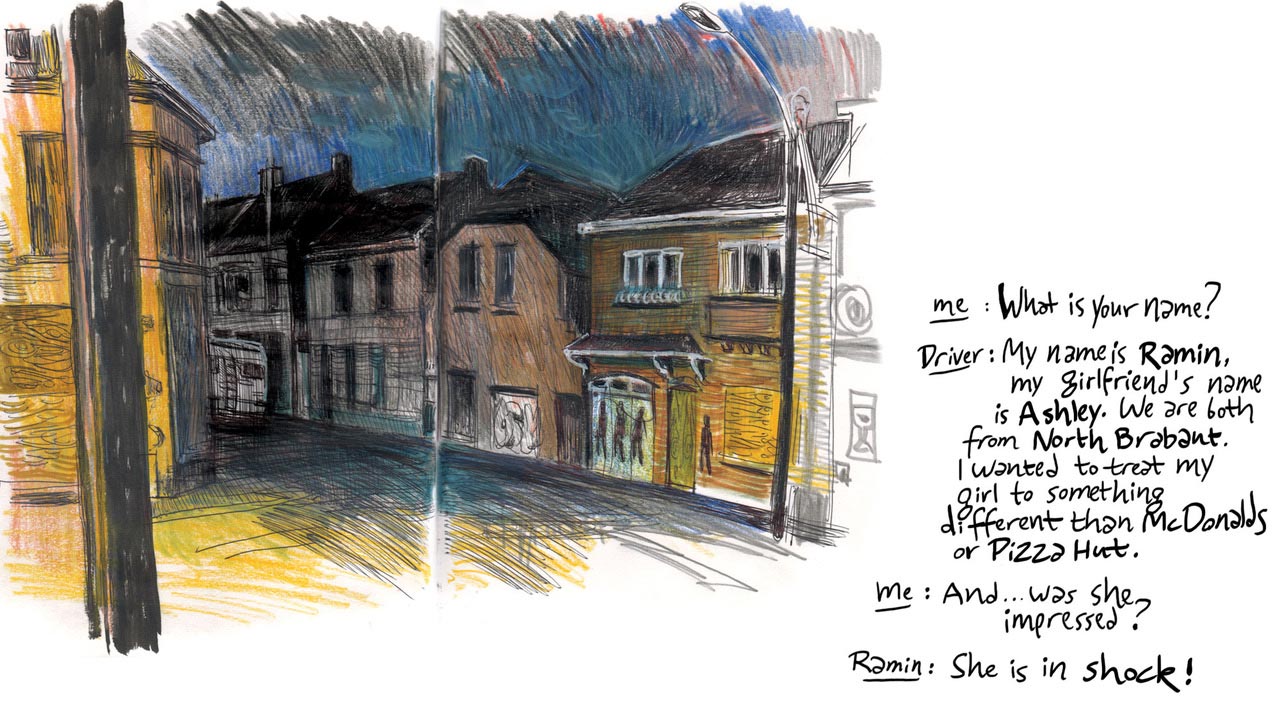 me : What is your name?
Driver : My name is Ramin,
my girlfriend's name
is Ashley. We are both
from North Brabant.
I wanted to treat my
girl to something
different than McDonalds
or Pizza Hut.
me : And... was she
impressed?
Ramin : She is in shock!